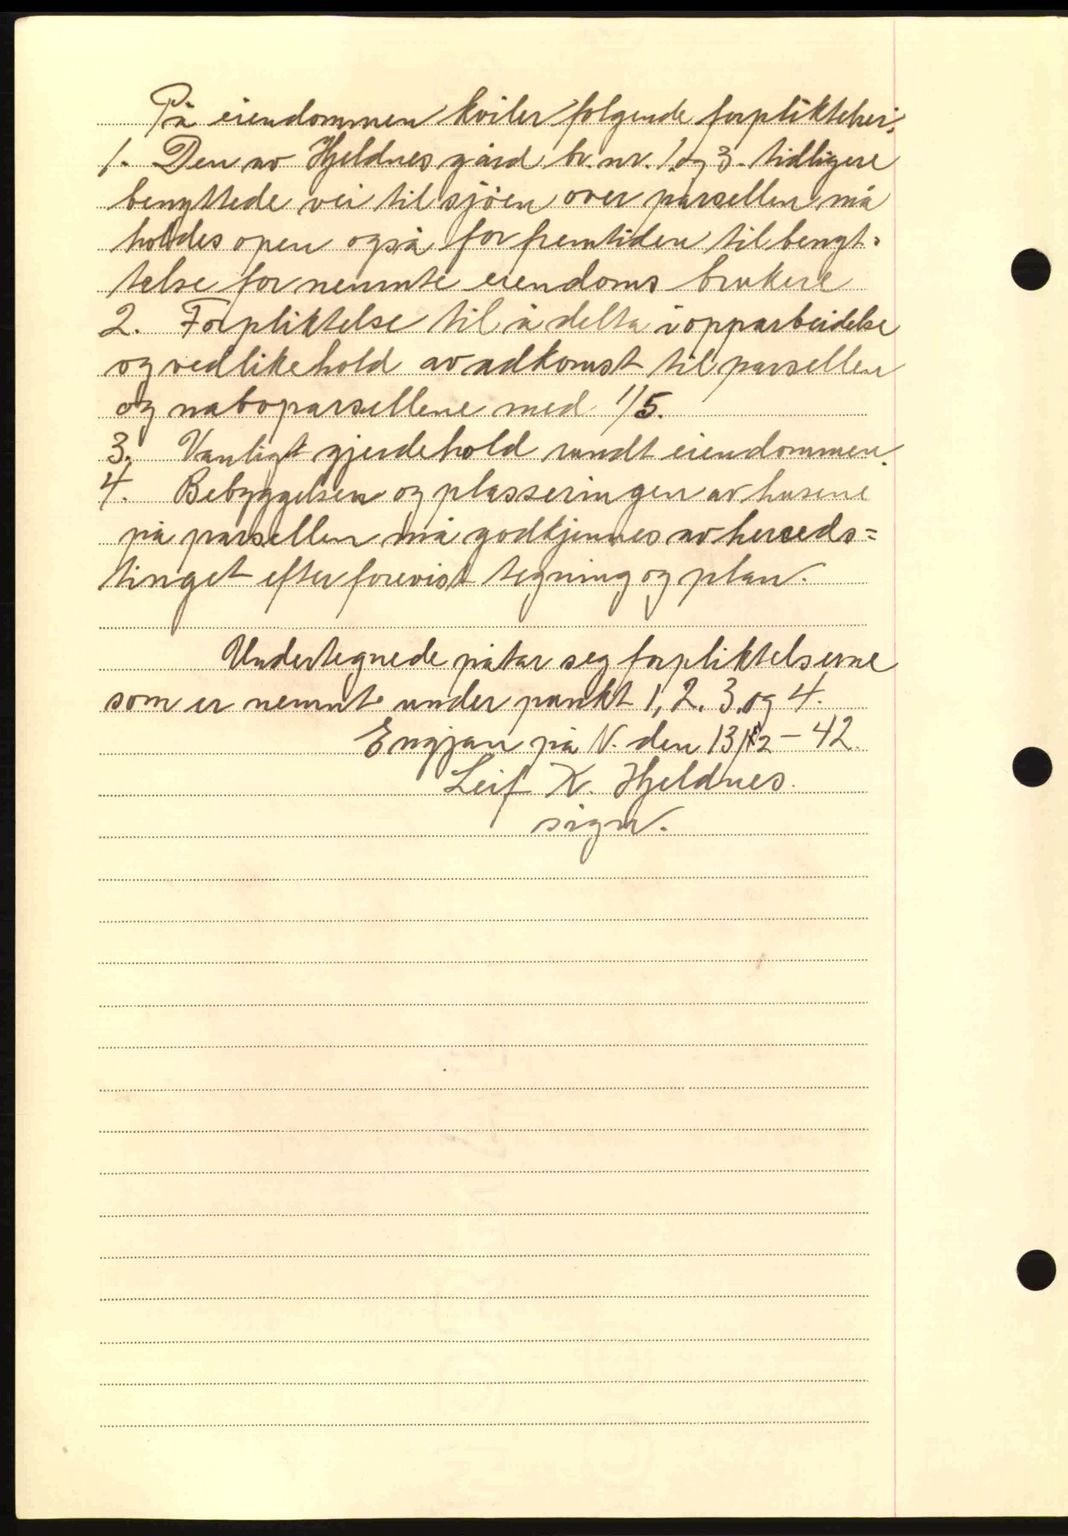 På eiendommen kviler følgende forpliktelser:
1. Den av Hjeldnes gård br. nr. 1 og 3. tidligere
benyttede vei til sjöen over parsellen må
holdes open også for fremtiden til benyt-
telse for nevnte eiendoms brukere
2. Forpliktelse til å delta i opparbeidelse
og vedlikehold av adkomst til parsellen
og naboparsellene med 1/5.
3. Vanligt gjerdehold rundt eiendommen.
4. Bebyggelsen og plasseringen av husene
på parsellen må godkjennes av hereds=
tinget efter forevist tegning og plan.
Undertegnede påtar seg forpliktelserne
som er nevnt under punkt 1, 2, 3, og 4.
Engjan på N. den 13/12 - 42.
Leif K. Hjeldnes.
sign.